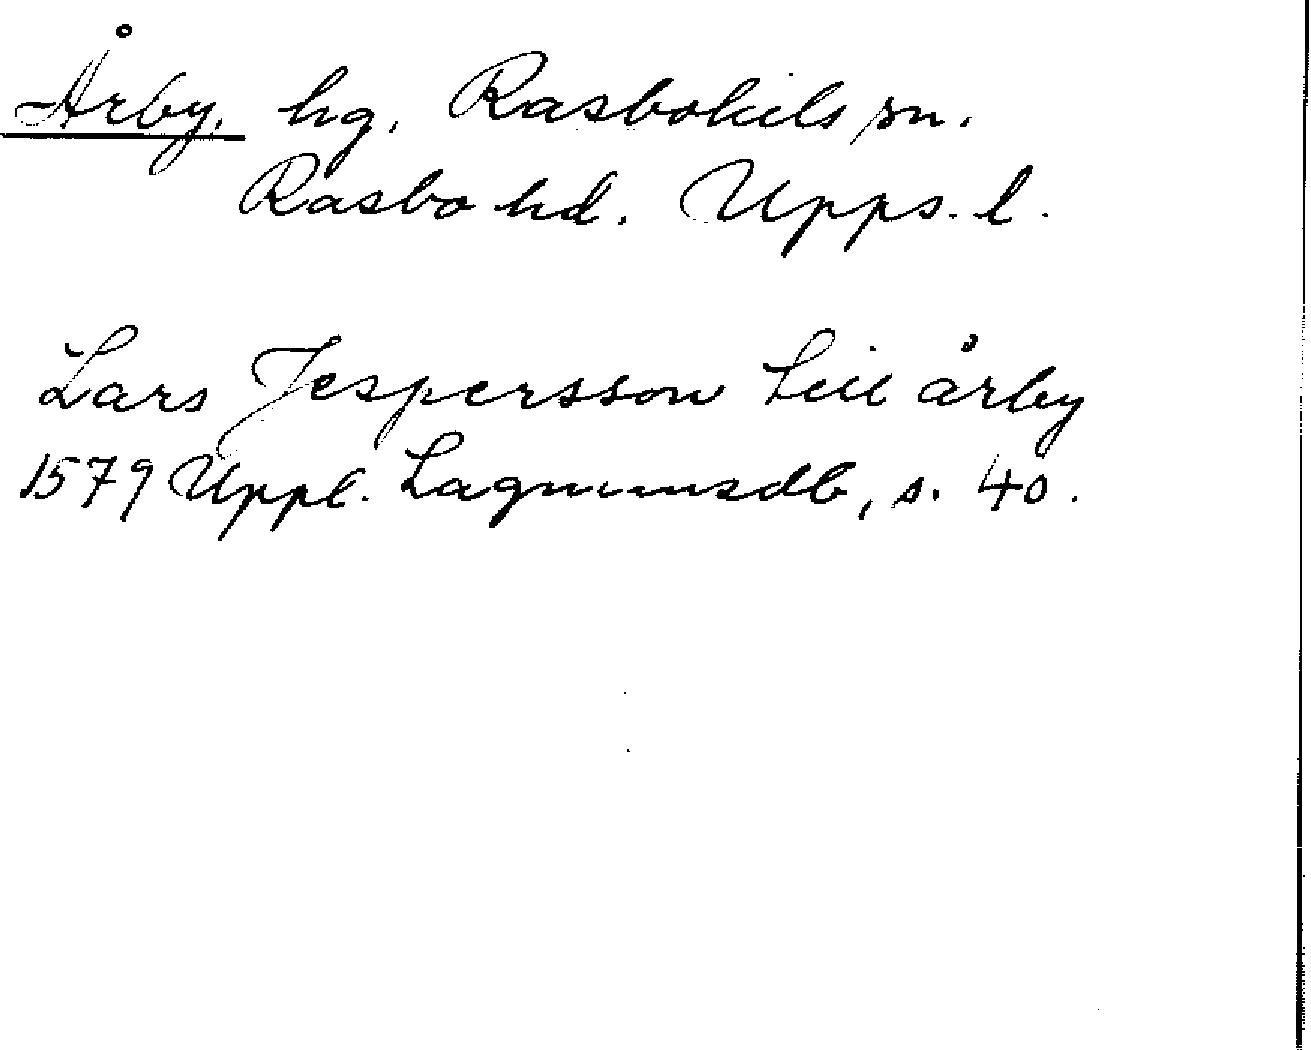 Årby, hg. Rasbokils sn.
Rasbo hd. Upps. l.
Lars Jespersson till årby
1579 Uppl. Lagmansdb, s. 40.